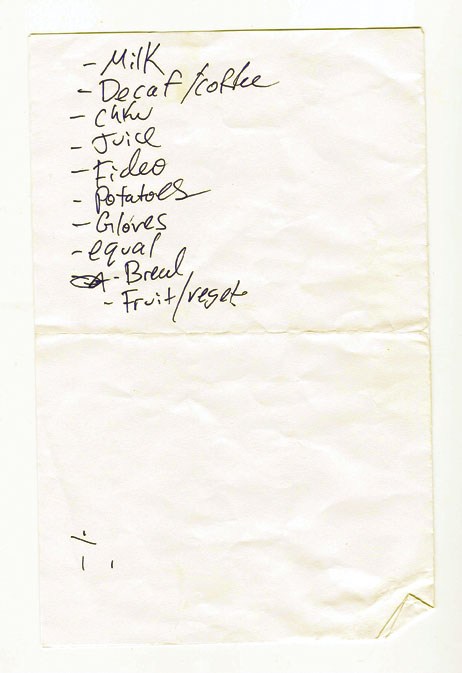 - Milk
- Decaf/coffee
-
- Juice
- Fideo
- Potatoes
- Gloves
- equal
- Bread
- Fruit/veget